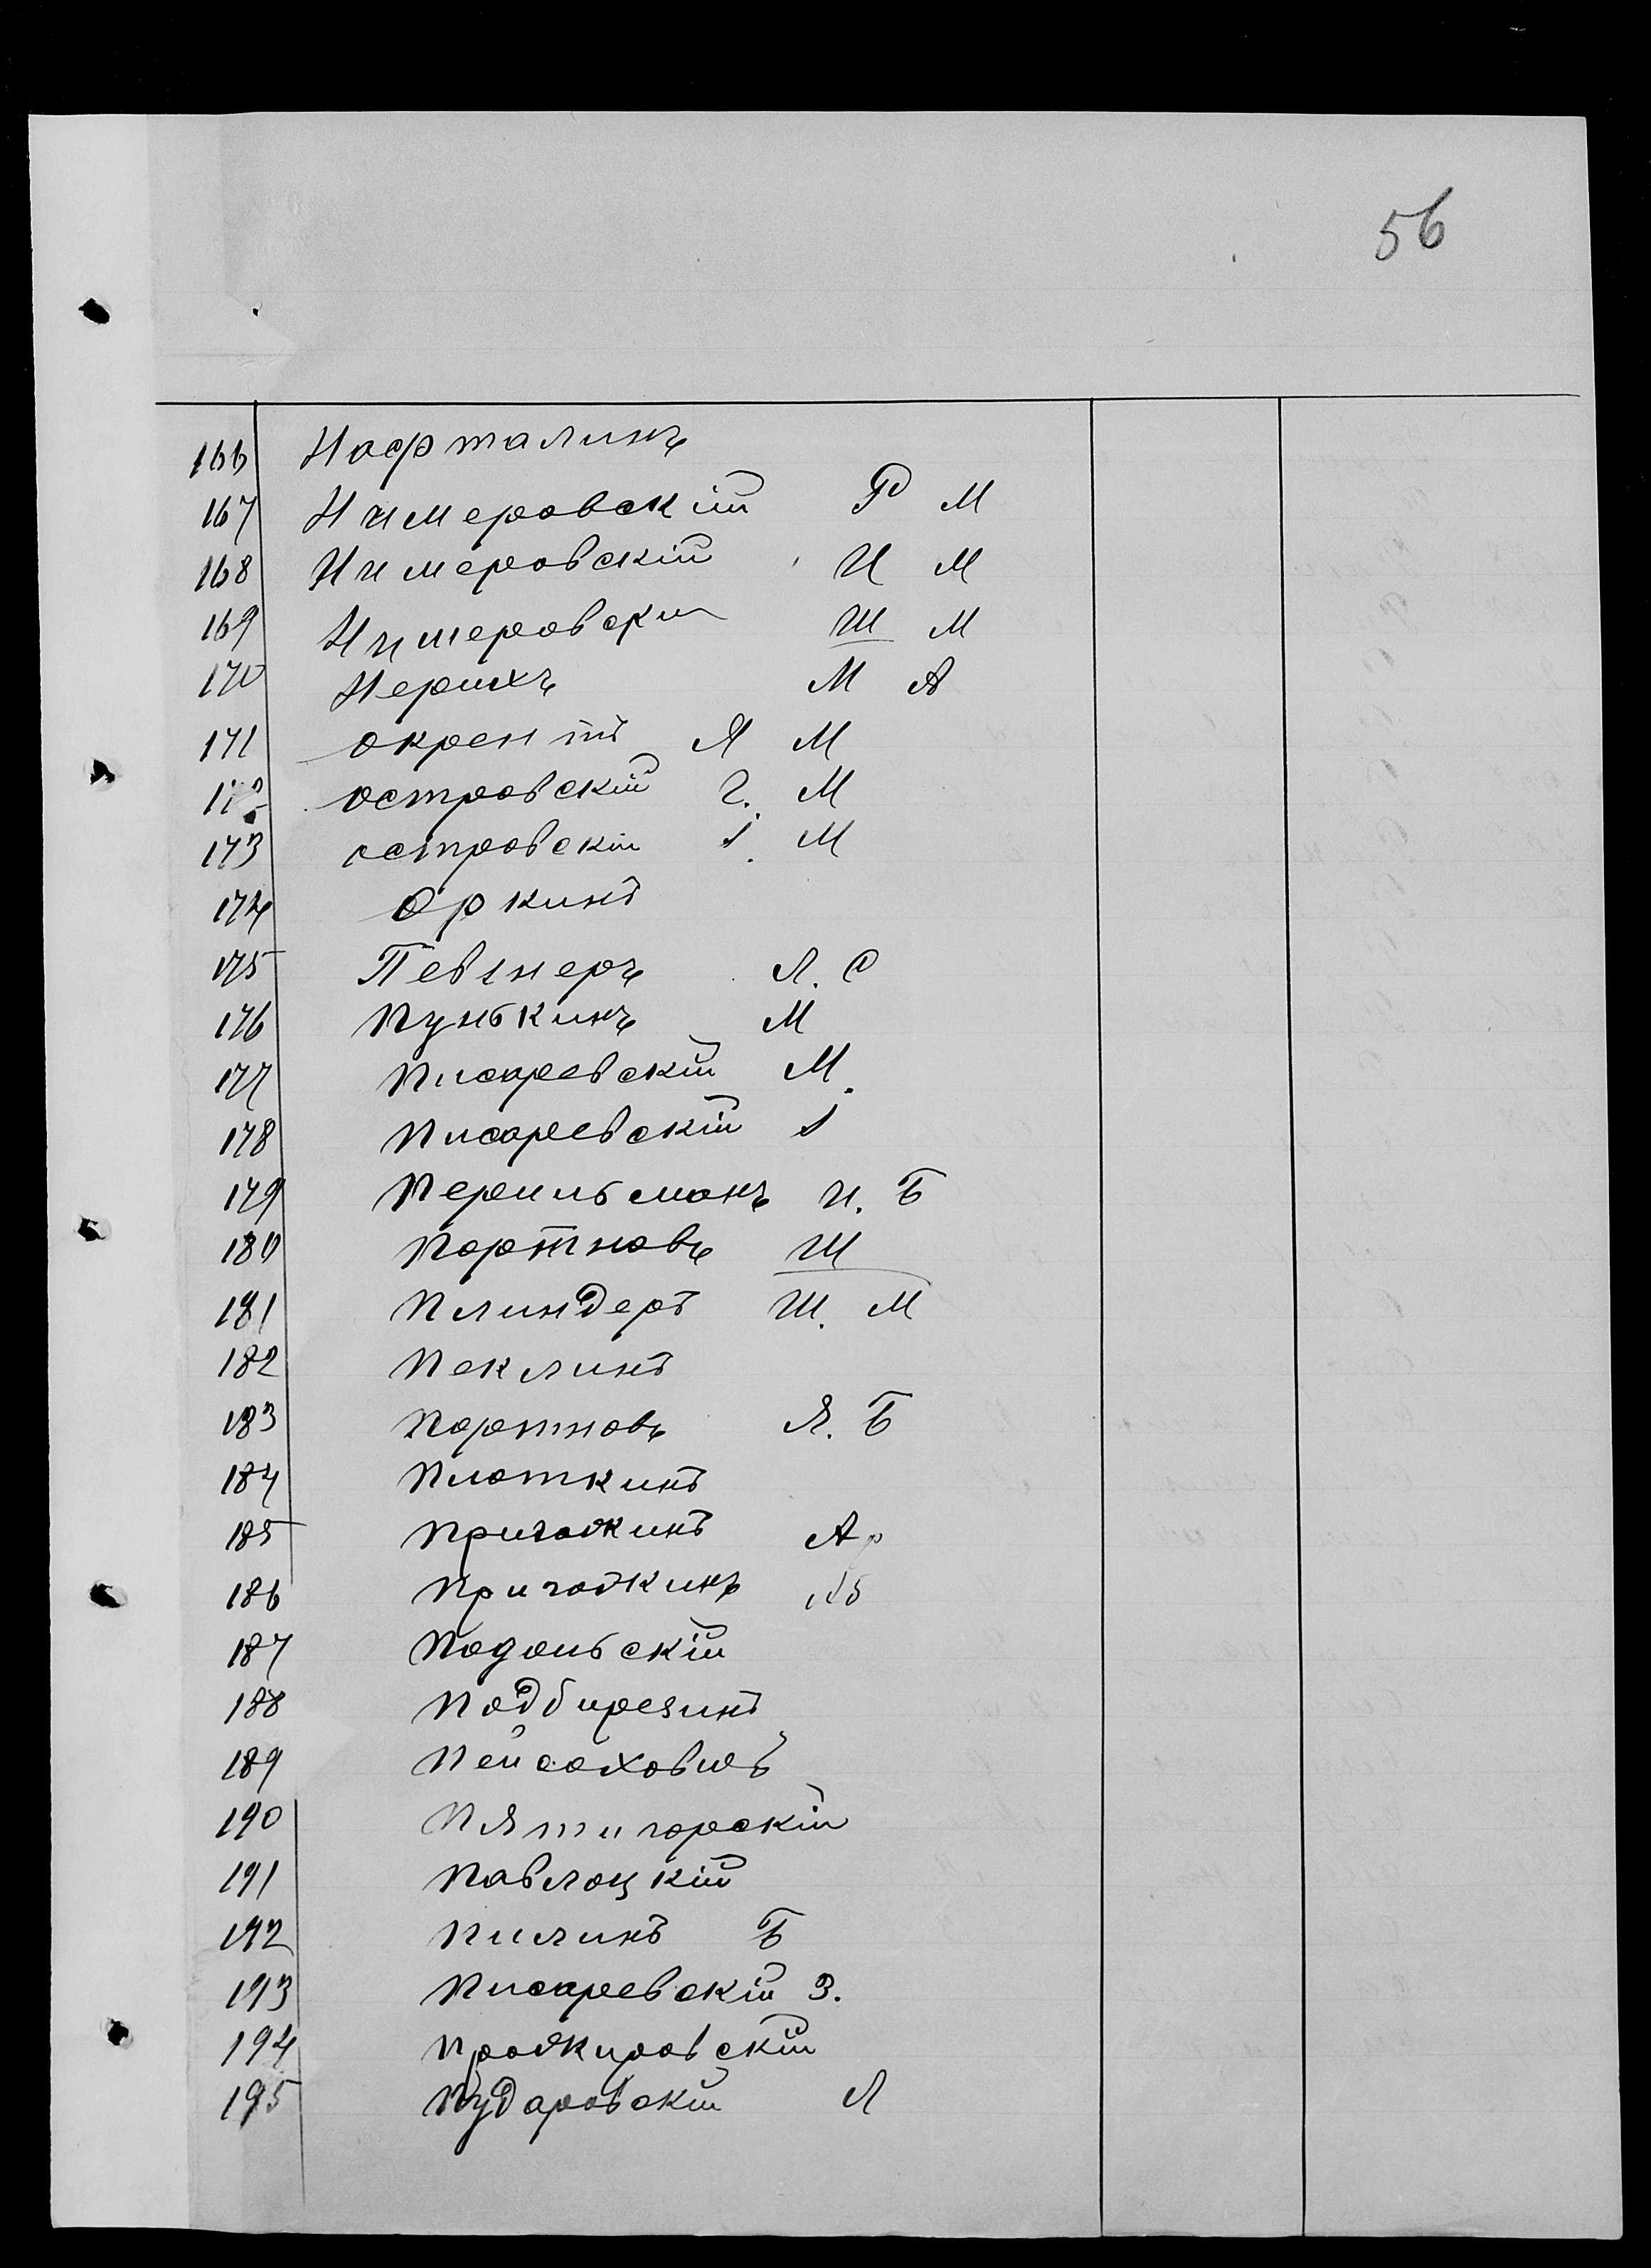 56
166 Нафталинъ
167 Нимеровскій Р М
168 Нимеровскій И М
169 Нимеровскій Ш М
170 Нерихъ М А
171 Окрентъ Я М
172 Островскій Г. М
173 Островскій І. М
174 Оркинъ
175 Певзнеръ Л. С
176 Пунькинъ М
177 Писаревскій М.
178 Писаревскій І
179 Перильманъ И. Б
180 Портновъ Ш
181 Плиндеръ Ш. М
182 Пеклинъ
183 Портновъ Я. Б
184 Плоткинъ
185 Пригожинъ А
186 Пригожинъ
187 Подольскій
188 Подбирезинъ
189 Пейсаховичъ
190 Пятигорскій
191 Павлоцкій
192 Пилинъ Б
193 Писаревскій З.
194 Проскировскій
195 Пударовскій Л